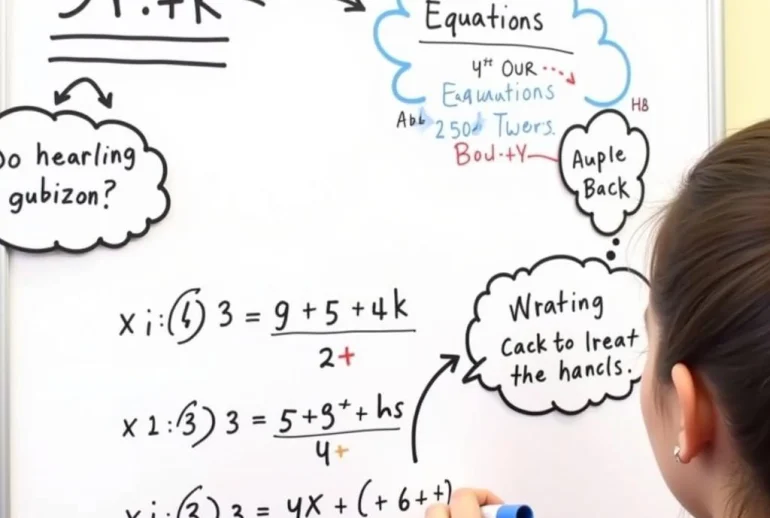 Equations
4tt OUR
Eaqmutions
Abb 250 Twers.
H8
Bod·+Y
Auple
Back
hearling
gubizon?
Wrating
Cack to lreat
the hancls.
x i:(4) 3 = 9 + 5 + 4k
2+
x 1:(3) 3 = 5+9⁺+ hs
4+
3 = 4x + (+ 6++)